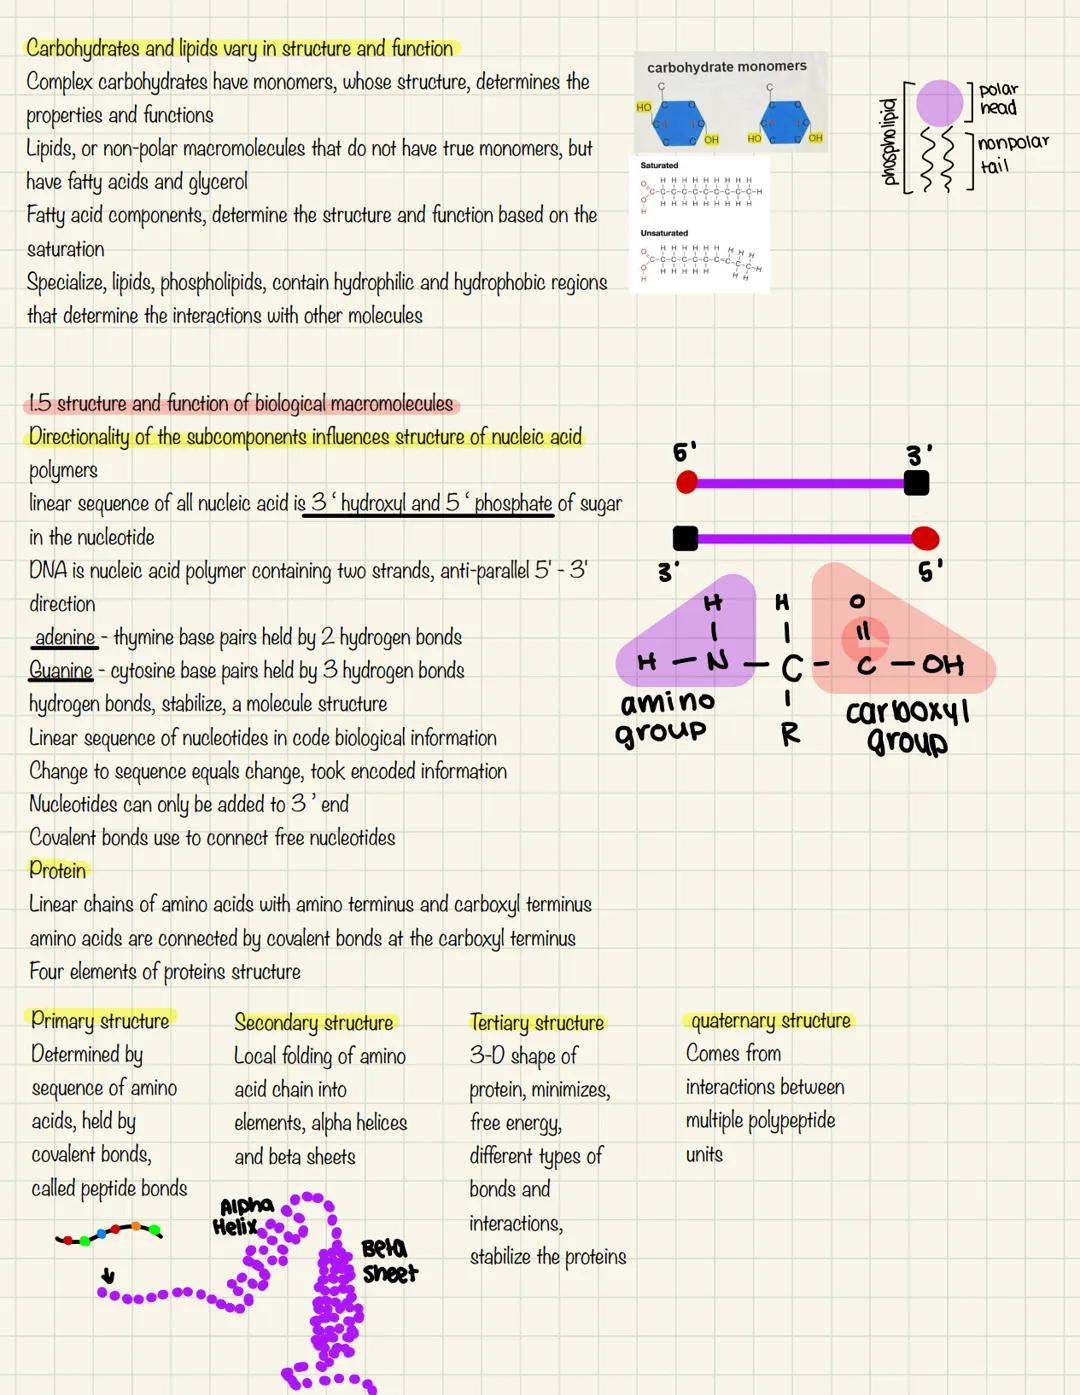 Carbohydrates and lipids vary in structure and function
Complex carbohydrates have monomers, whose structure, determines the
properties and functions
Lipids, or non-polar macromolecules that do not have true monomers, but
have fatty acids and glycerol
Fatty acid components, determine the structure and function based on the
saturation
Specialize, lipids, phospholipids, contain hydrophilic and hydrophobic regions
that determine the interactions with other molecules
carbohydrate monomers
C
C
HO
OH
HO
OH
Saturated
H H H H H H H H H
C-C-C-C-C-C-C-C-C-C-H
H H H H H H H H H
Unsaturated
phospholipid
polar
head
nonpolar
tail
1.5 structure and function of biological macromolecules
Directionality of the subcomponents influences structure of nucleic acid
polymers
linear sequence of all nucleic acid is 3 ‘ hydroxyl and 5 ‘ phosphate of sugar
in the nucleotide
DNA is nucleic acid polymer containing two strands, anti-parallel 5' - 3'
direction
adenine - thymine base pairs held by 2 hydrogen bonds
Guanine - cytosine base pairs held by 3 hydrogen bonds
hydrogen bonds, stabilize, a molecule structure
Linear sequence of nucleotides in code biological information
Change to sequence equals change, took encoded information
Nucleotides can only be added to 3 ’ end
Covalent bonds use to connect free nucleotides
5' 3'
3' 5'
H H O
H — N — C — C — OH
R
amino
group
carboxyl
group
Protein
Linear chains of amino acids with amino terminus and carboxyl terminus
amino acids are connected by covalent bonds at the carboxyl terminus
Four elements of proteins structure
Primary structure
Determined by
sequence of amino
acids, held by
covalent bonds,
called peptide bonds
Secondary structure
Local folding of amino
acid chain into
elements, alpha helices
and beta sheets
Alpha
Helix
Beta
Sheet
Tertiary structure
3-D shape of
protein, minimizes,
free energy,
different types of
bonds and
interactions,
stabilize the proteins
quaternary structure
Comes from
interactions between
multiple polypeptide
units